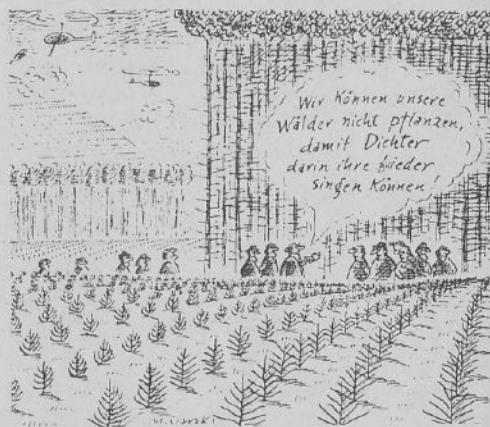 Wir können unsere
Wälder nicht pflanzen,
damit Dichter
darin ihre Lieder
singen können!